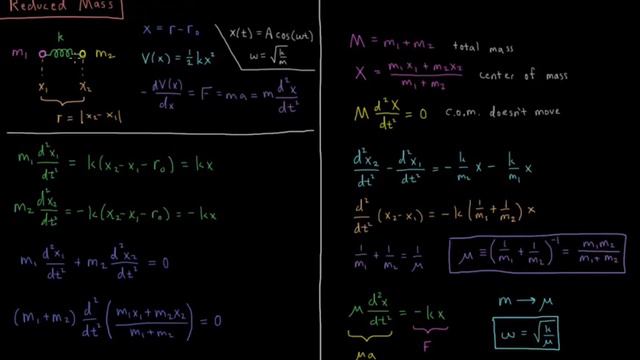 Reduced Mass
k
m₁ m₂
x₁ x₂
r = |x₂-x₁|
x = r - r₀
V(x) = ½ kx²
-dV(x)/dx = F = ma = m d²x/dt²
x(t) = A cos(ωt)
ω = √(k/m)
m₁ d²x₁/dt² = k(x₂-x₁-r₀) = kx
m₂ d²x₂/dt² = -k(x₂-x₁-r₀) = -kx
m₁ d²x₁/dt² + m₂ d²x₂/dt² = 0
(m₁+m₂) d²/dt² ((m₁x₁+m₂x₂)/(m₁+m₂)) = 0
M = m₁+m₂ total mass
X = (m₁x₁+m₂x₂)/(m₁+m₂) center of mass
M d²X/dt² = 0 c.o.m. doesn't move
d²x₂/dt² - d²x₁/dt² = -k/m₂ x - k/m₁ x
d²/dt² (x₂-x₁) = -k(1/m₁ + 1/m₂) x
1/m₁ + 1/m₂ = 1/μ
μ ≡ (1/m₁ + 1/m₂)⁻¹ = m₁m₂/(m₁+m₂)
μ d²x/dt² = -kx
μa F
m → μ
ω = √(k/μ)